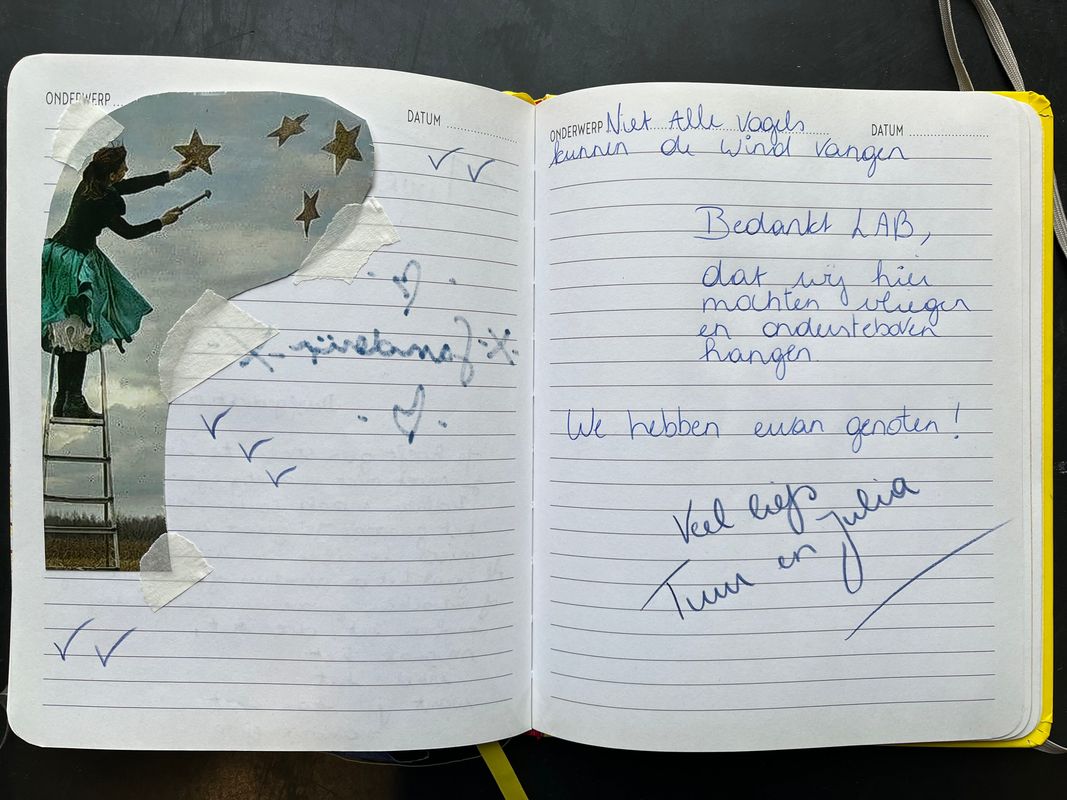 ONDERWERP
DATUM
ONDERWERP Niet Alle Vogels
DATUM
kunnen de wind vangen
Bedankt LAB,
dat wij hier
mochten vliegen
en ondersteboven
hangen
We hebben ervan genoten!
Veel liefs
Tuur en Julia